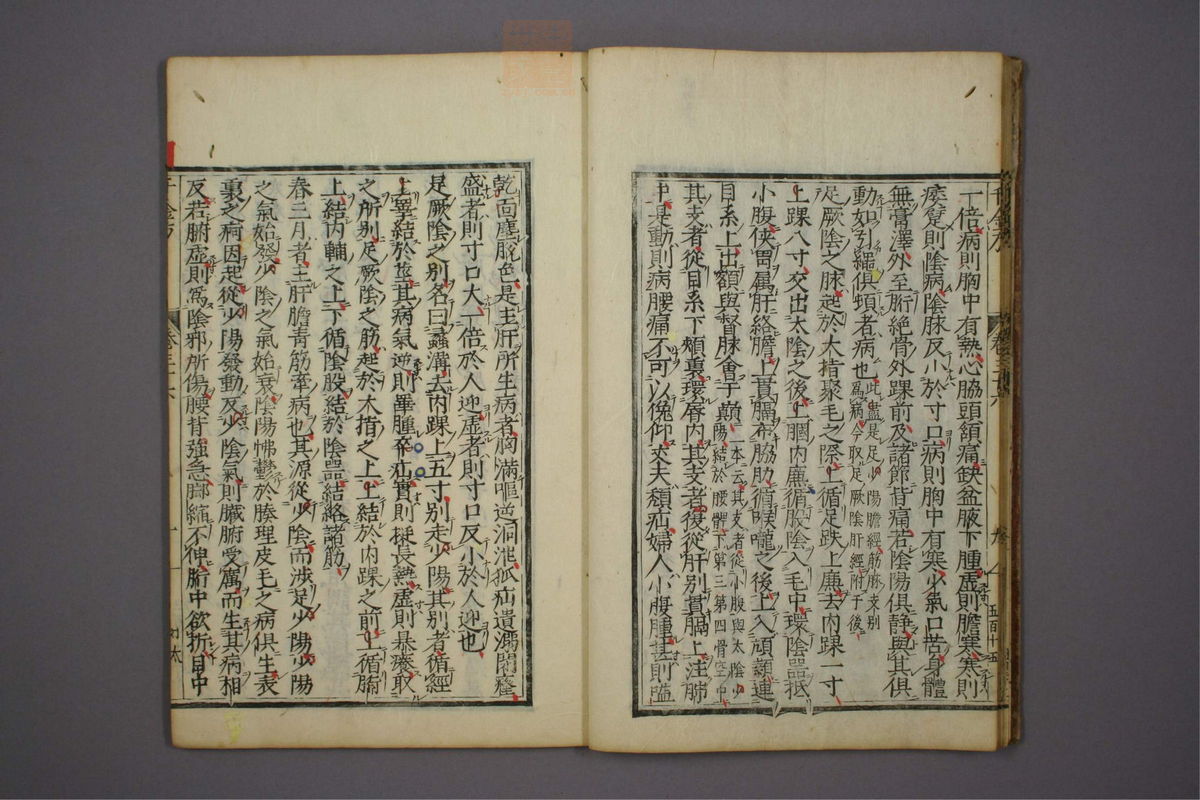 一倍病則胸中有熱心脇頭頟痛缺盆腋下腫虛則膽寒寒則
痿躄則陰病陰脉反小於寸口病則胸中有寒少氣口苦身體
無膏澤外至胻絕骨外踝前及諸節皆痛若陰陽俱静與其俱
動如引繩俱頓者病也此盖是足少陽膽經筋脉支别為病今取足厥陰肝經附于後
足厥陰之脉起於大指聚毛之際上循足趺上廉去内踝一寸
上踝八寸交出太陰之後上膕内廉循股陰入毛中環陰器抵
小腹俠胃属肝絡膽上貫膈布脇肋循喉嚨之後上入頏顙連
目系上出額與督脉會于巔一本云其支者從小腹與太陰少陽結於腰髁下第三第四骨空中
其支者從目系下頰裏環唇内其支者復從肝别貫膈上注肺
中是動則病腰痛不可以俛仰丈夫㿗疝婦人小腹腫甚則嗌
乾面塵脫色是主肝所生病者胸滿嘔逆洞泄狐疝遺溺閉癃
盛者則寸口大一倍於人迎虛者則寸口反小於人迎也
足厥陰之别名曰蠡溝去内踝上五寸别走少陽其别者循經
上睾結於莖其病氣逆則睾腫卒疝實則挺長熱虛則暴癢取
之所别足厥陰之筋起於大指之上上結於内踝之前上循胻
上結内輔之上下循陰股結於陰器結絡諸筋
春三月者主肝膽青筋牽病也其源從少陰而涉足少陽少陽
之氣始發少陰之氣始衰陰陽怫鬱於腠理皮毛之病俱生表
裏之痾因起從少陽發動反少陰氣則臟腑受厲而生其病相
反若腑虛則爲陰邪所傷腰背强急脚縮不伸胻中欲折目中